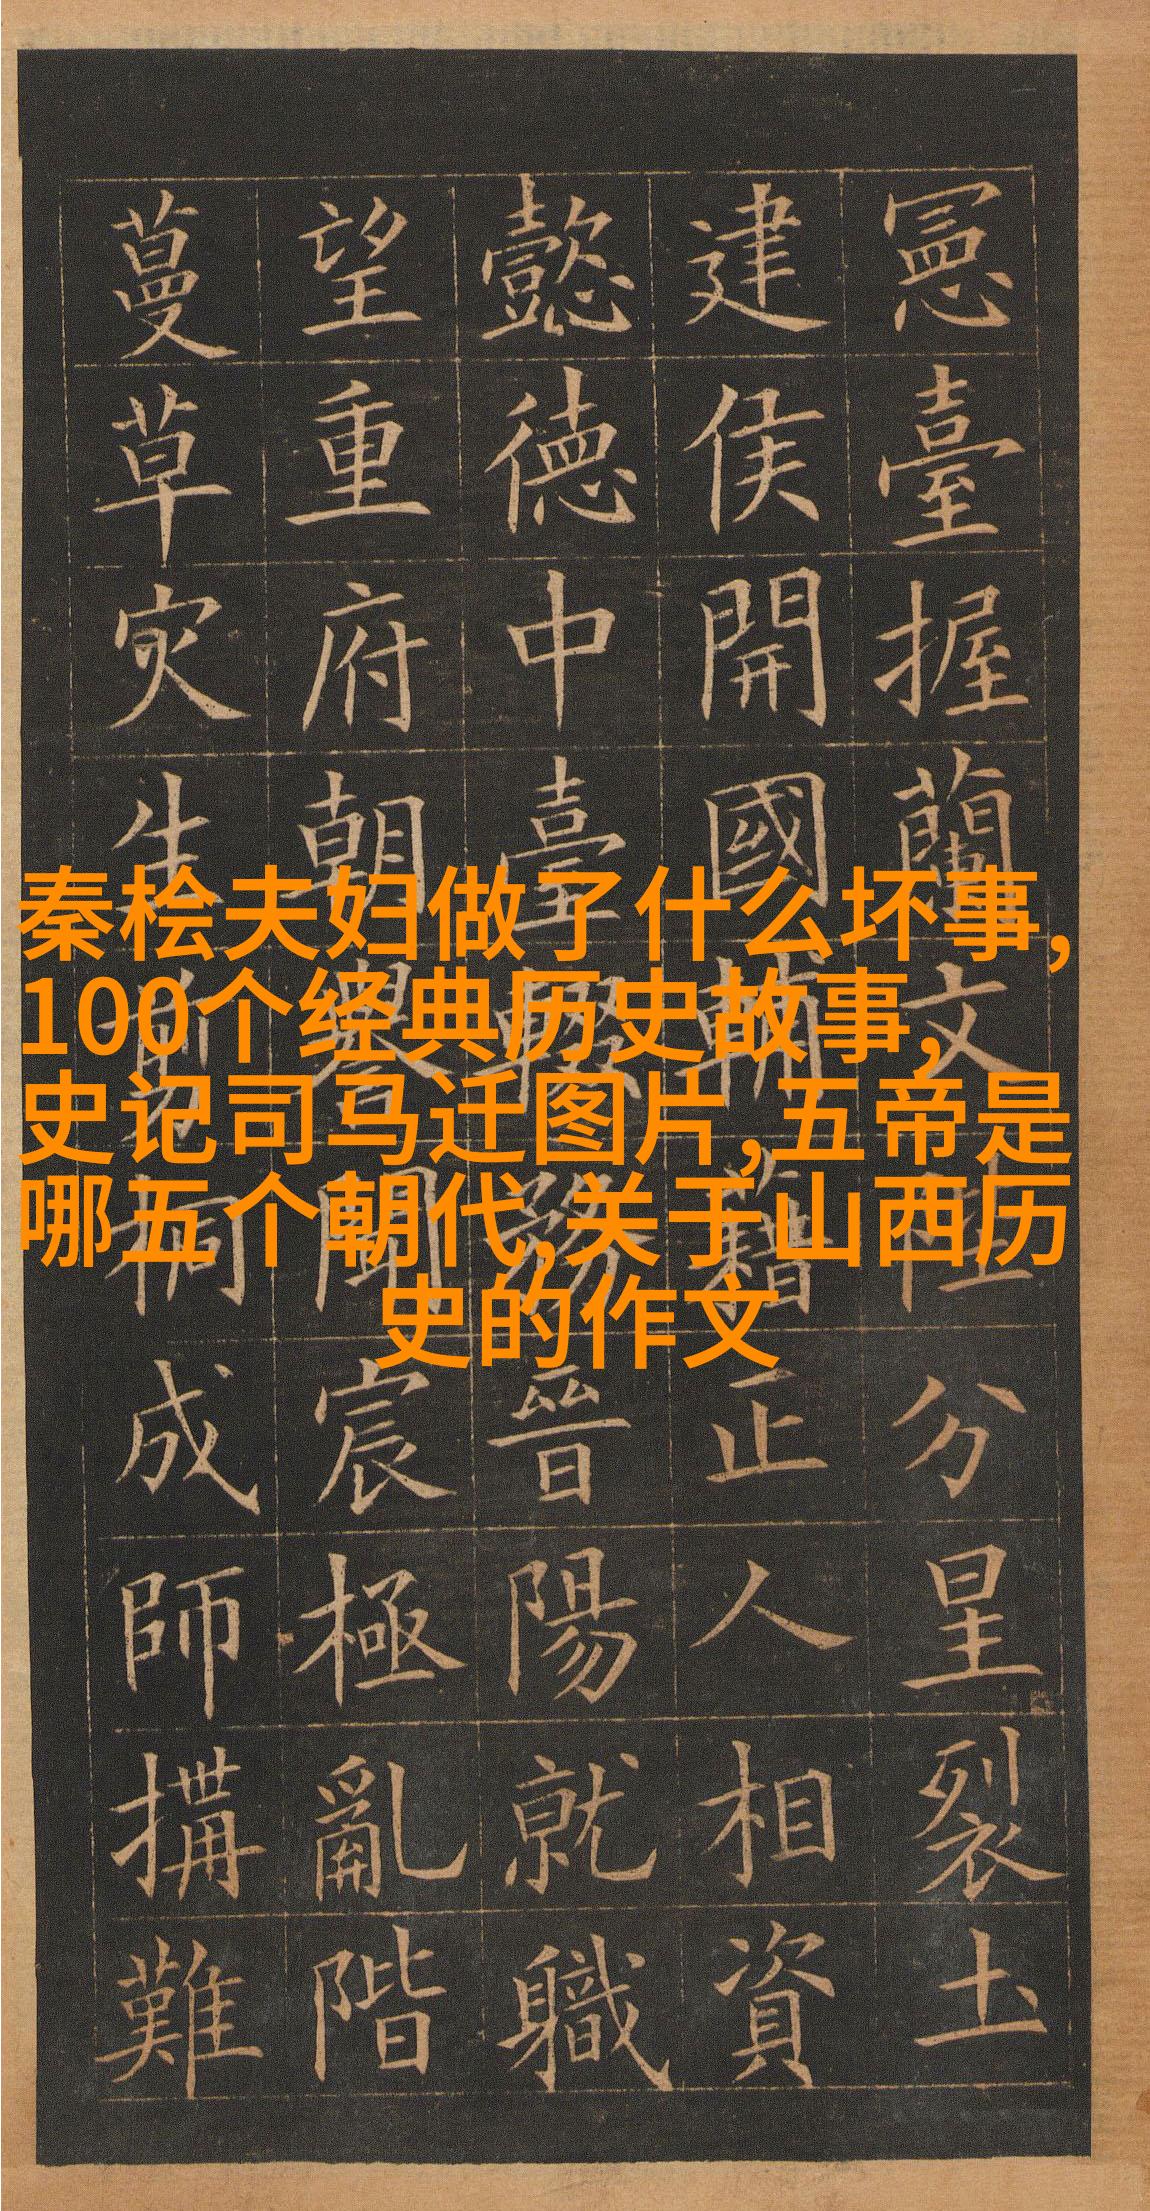 憲臺握蘭文陛分星裂土
建侯開國輔籍正人相資
懿德中臺緊務晉陽就職
望重府朝譽聞宸極亂階
蔓草灾生剪桐成師搆難
秦桧夫妇做了什么坏事,
100个经典历史故事,
史记司马迁图片,五帝是
哪五个朝代,关于山西历
史的作文